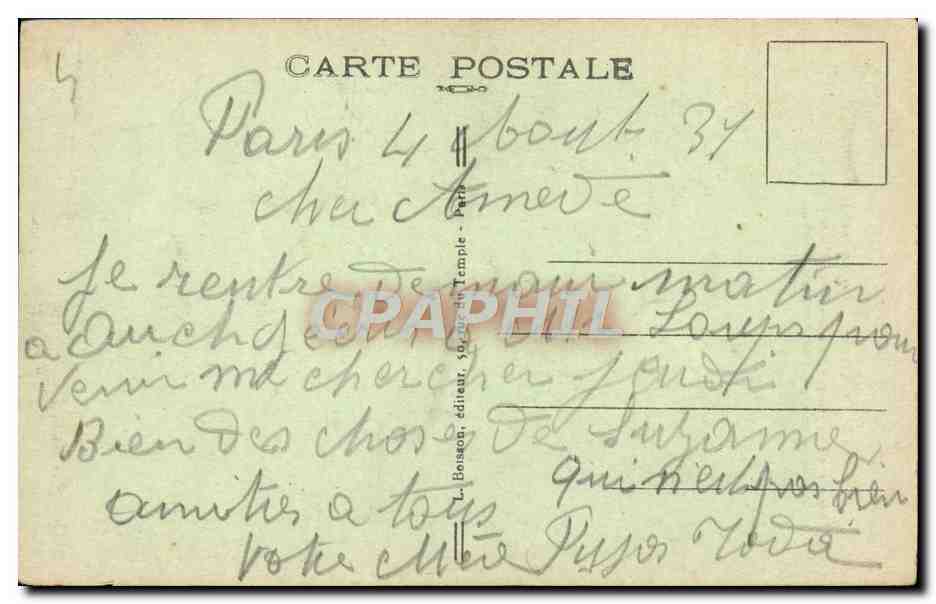 4
CARTE POSTALE
Paris 4 Aout 37
cher Amedé
Je rentre demain matin
a auch j'écris Mr Loups pour
venir me chercher jeudi
Bien des choses de Suzanne
qui n'est pas bien
amities a tous
Votre Mère
L. Boisson, éditeur, 50, rue du Temple - Paris
CPARHIL